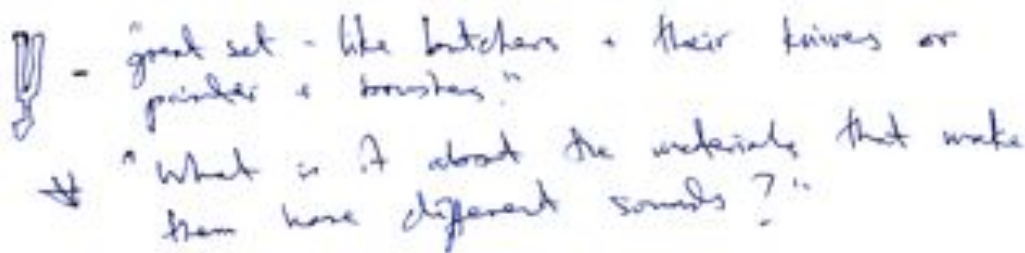 - "great set - like butchers + their knives or
painter + brushes."
* "What is it about the materials that make
them have different sounds?"